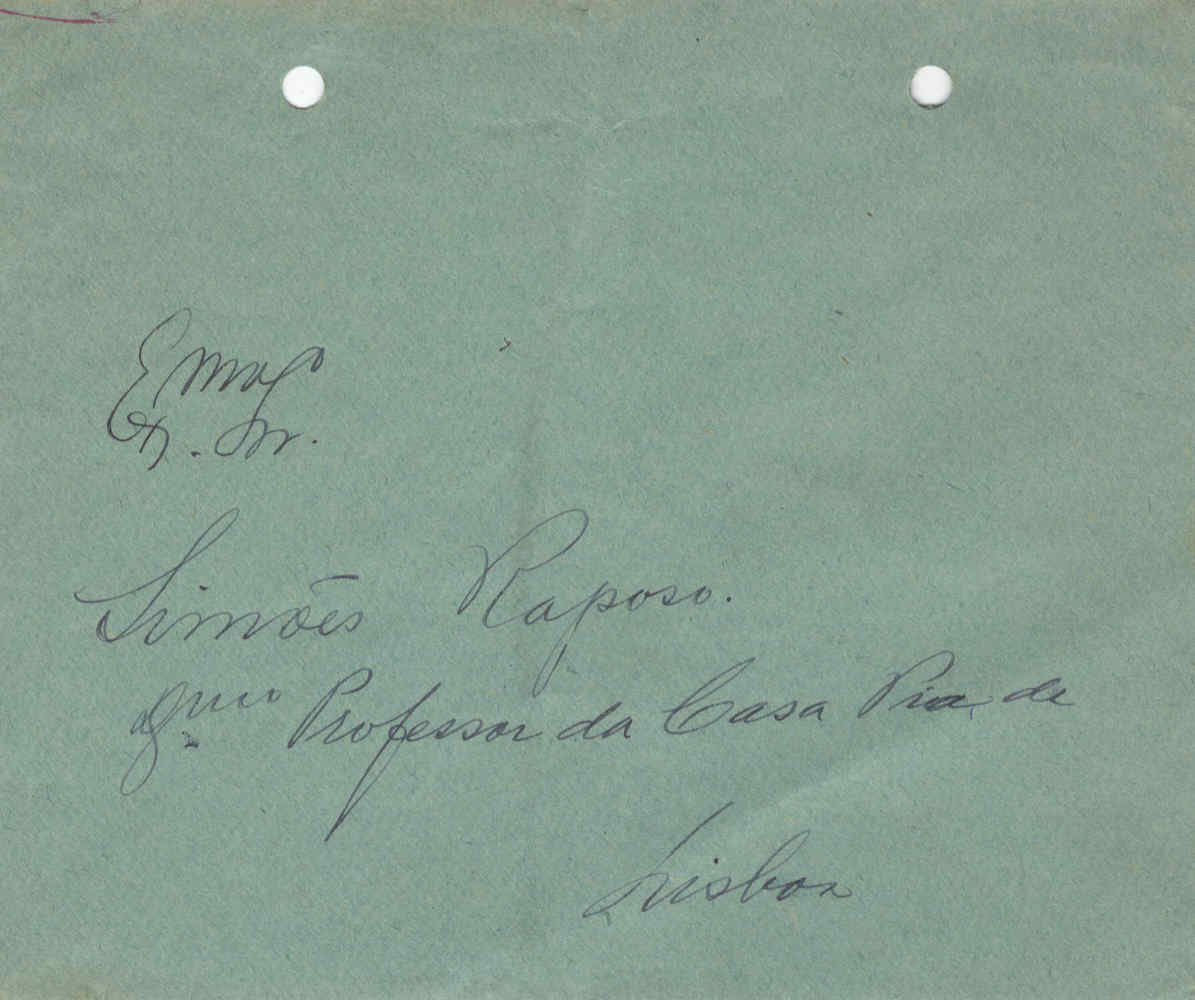 Ex.mo Sr.
Simões Raposo.
Professor da Casa Pia de
Lisboa